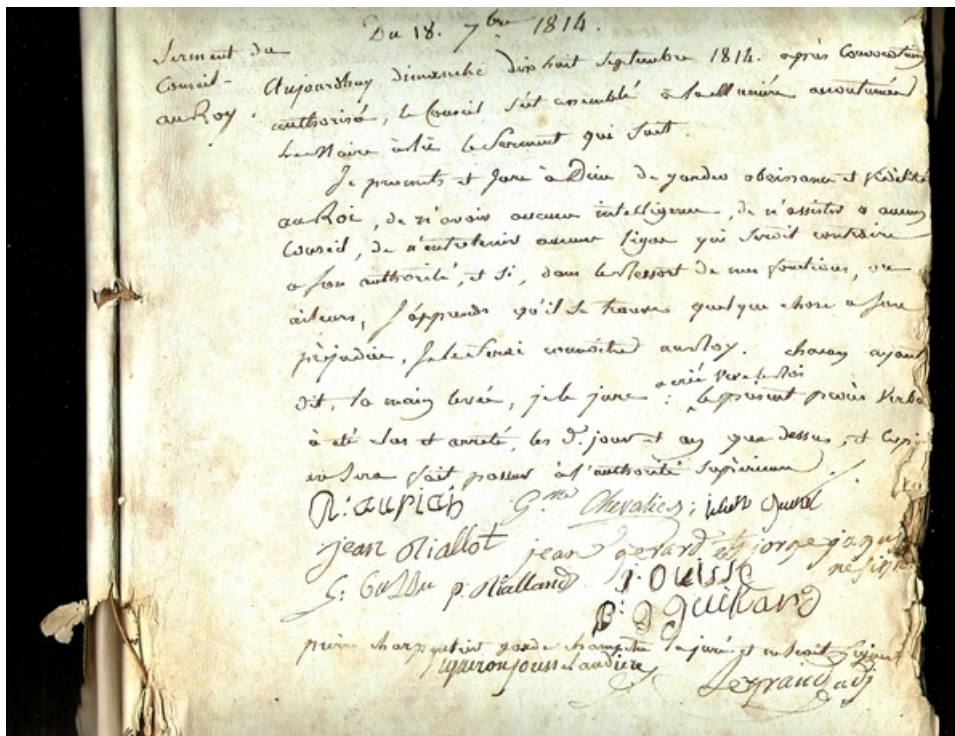 Du 18. 7bre 1814.
Serment du
Conseil
au Roy.
Aujourdhuy dimanche dix huit Septembre 1814. après Convocation
authorisé, le Conseil s'est assemblé a la manière accoutumée
le Maire a le Serment qui suit.
Je promets et Jure à Dieu de garder obeissance et fidelité
au Roi, de n'avoir aucune intelligence, de n'assister a aucun
Conseil, de n'entretenir aucune ligue qui seroit contraire
a son authorité, et si, dans le Ressort de mes fonctions, ou
ailleurs, J'apprends qu'il se trame quelque chose a son
préjudice, Je le ferai connoitre au Roy. chacun ayant
dit, la main levée, je le jure : a crié Vive le Roi
le present procès Verbal
à été clos et arreté, les d. jour et an que dessus, et Copie
en sera fait passer à l'authorité Supérieure.
Chevalier; julien
jean Riallot jean gerard
p. Rialland j. Ouisse
pierre charpentier garde champetre a juré et
Legrand adj